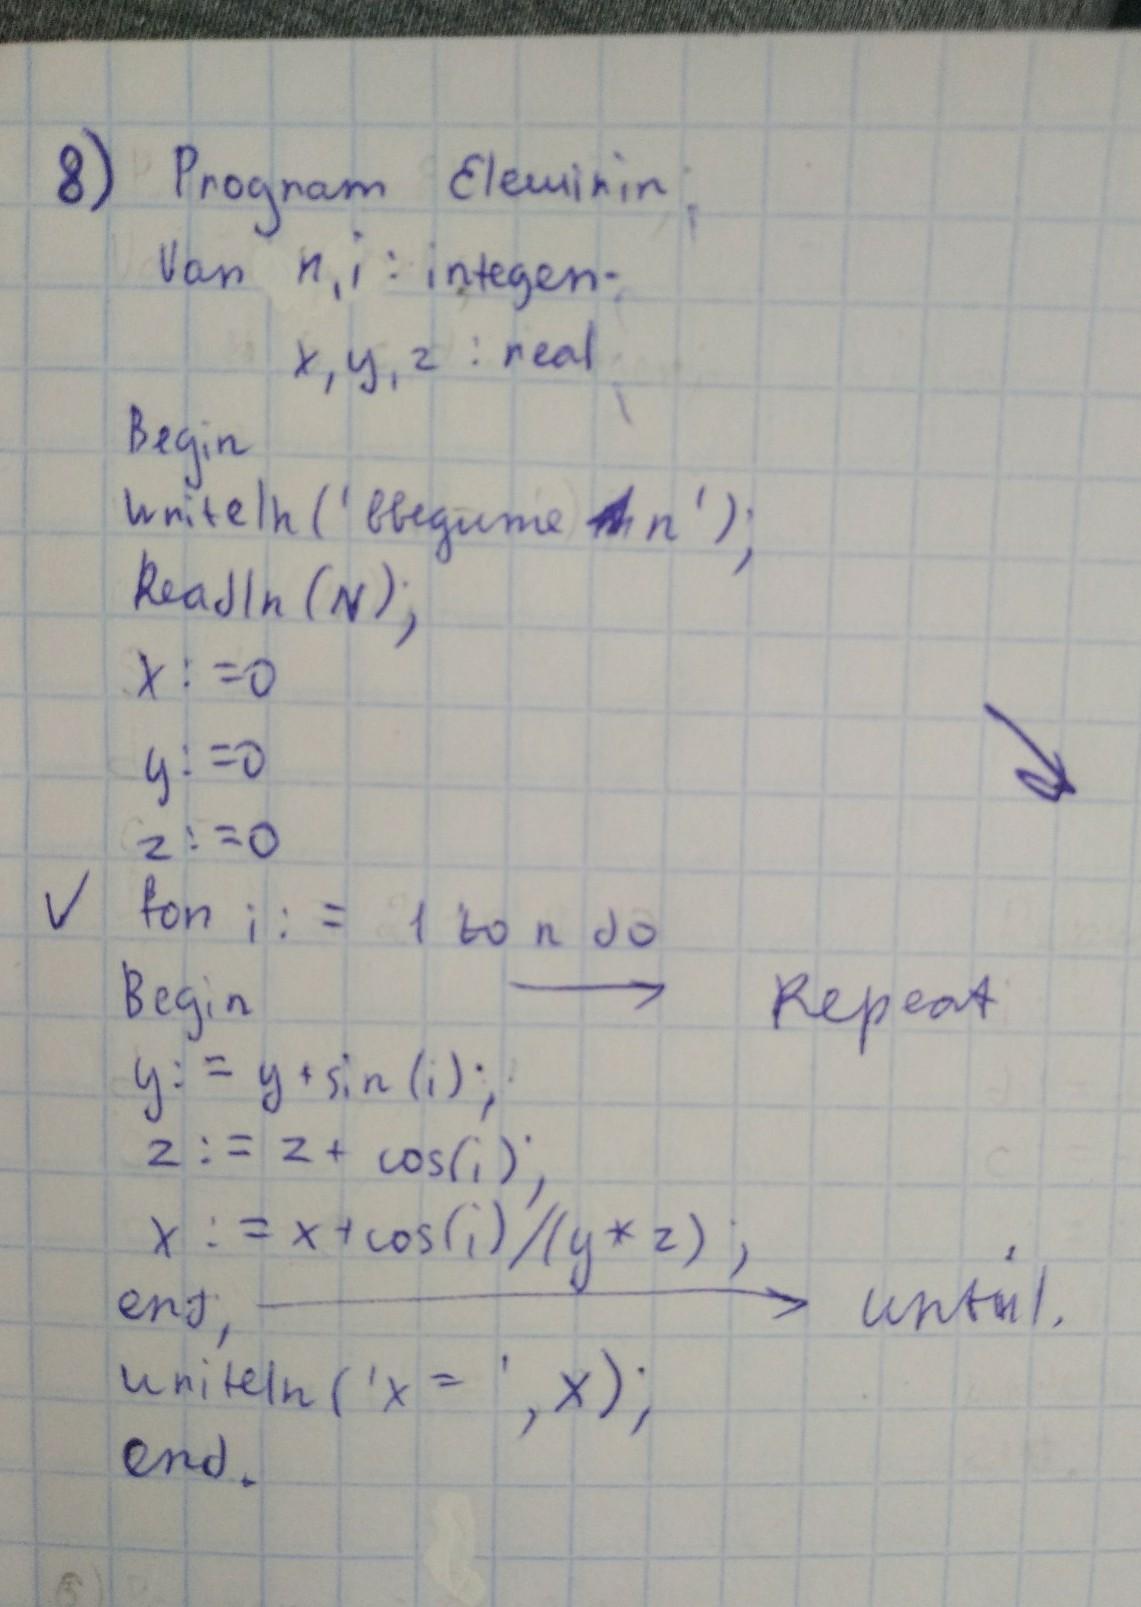 8) Program Eleminin;
Var n,i: integer;
x, y, z : real
Begin
Writeln('Введите n');
Readln(N);
x:=0
y:=0
z:=0
✓ for i:= 1 to n do
Begin → Repeat
y:= y+sin(i);
z:= z+ cos(i);
x:= x+cos(i)/(y*z);
end; → until.
writeln('x= ', x);
end.